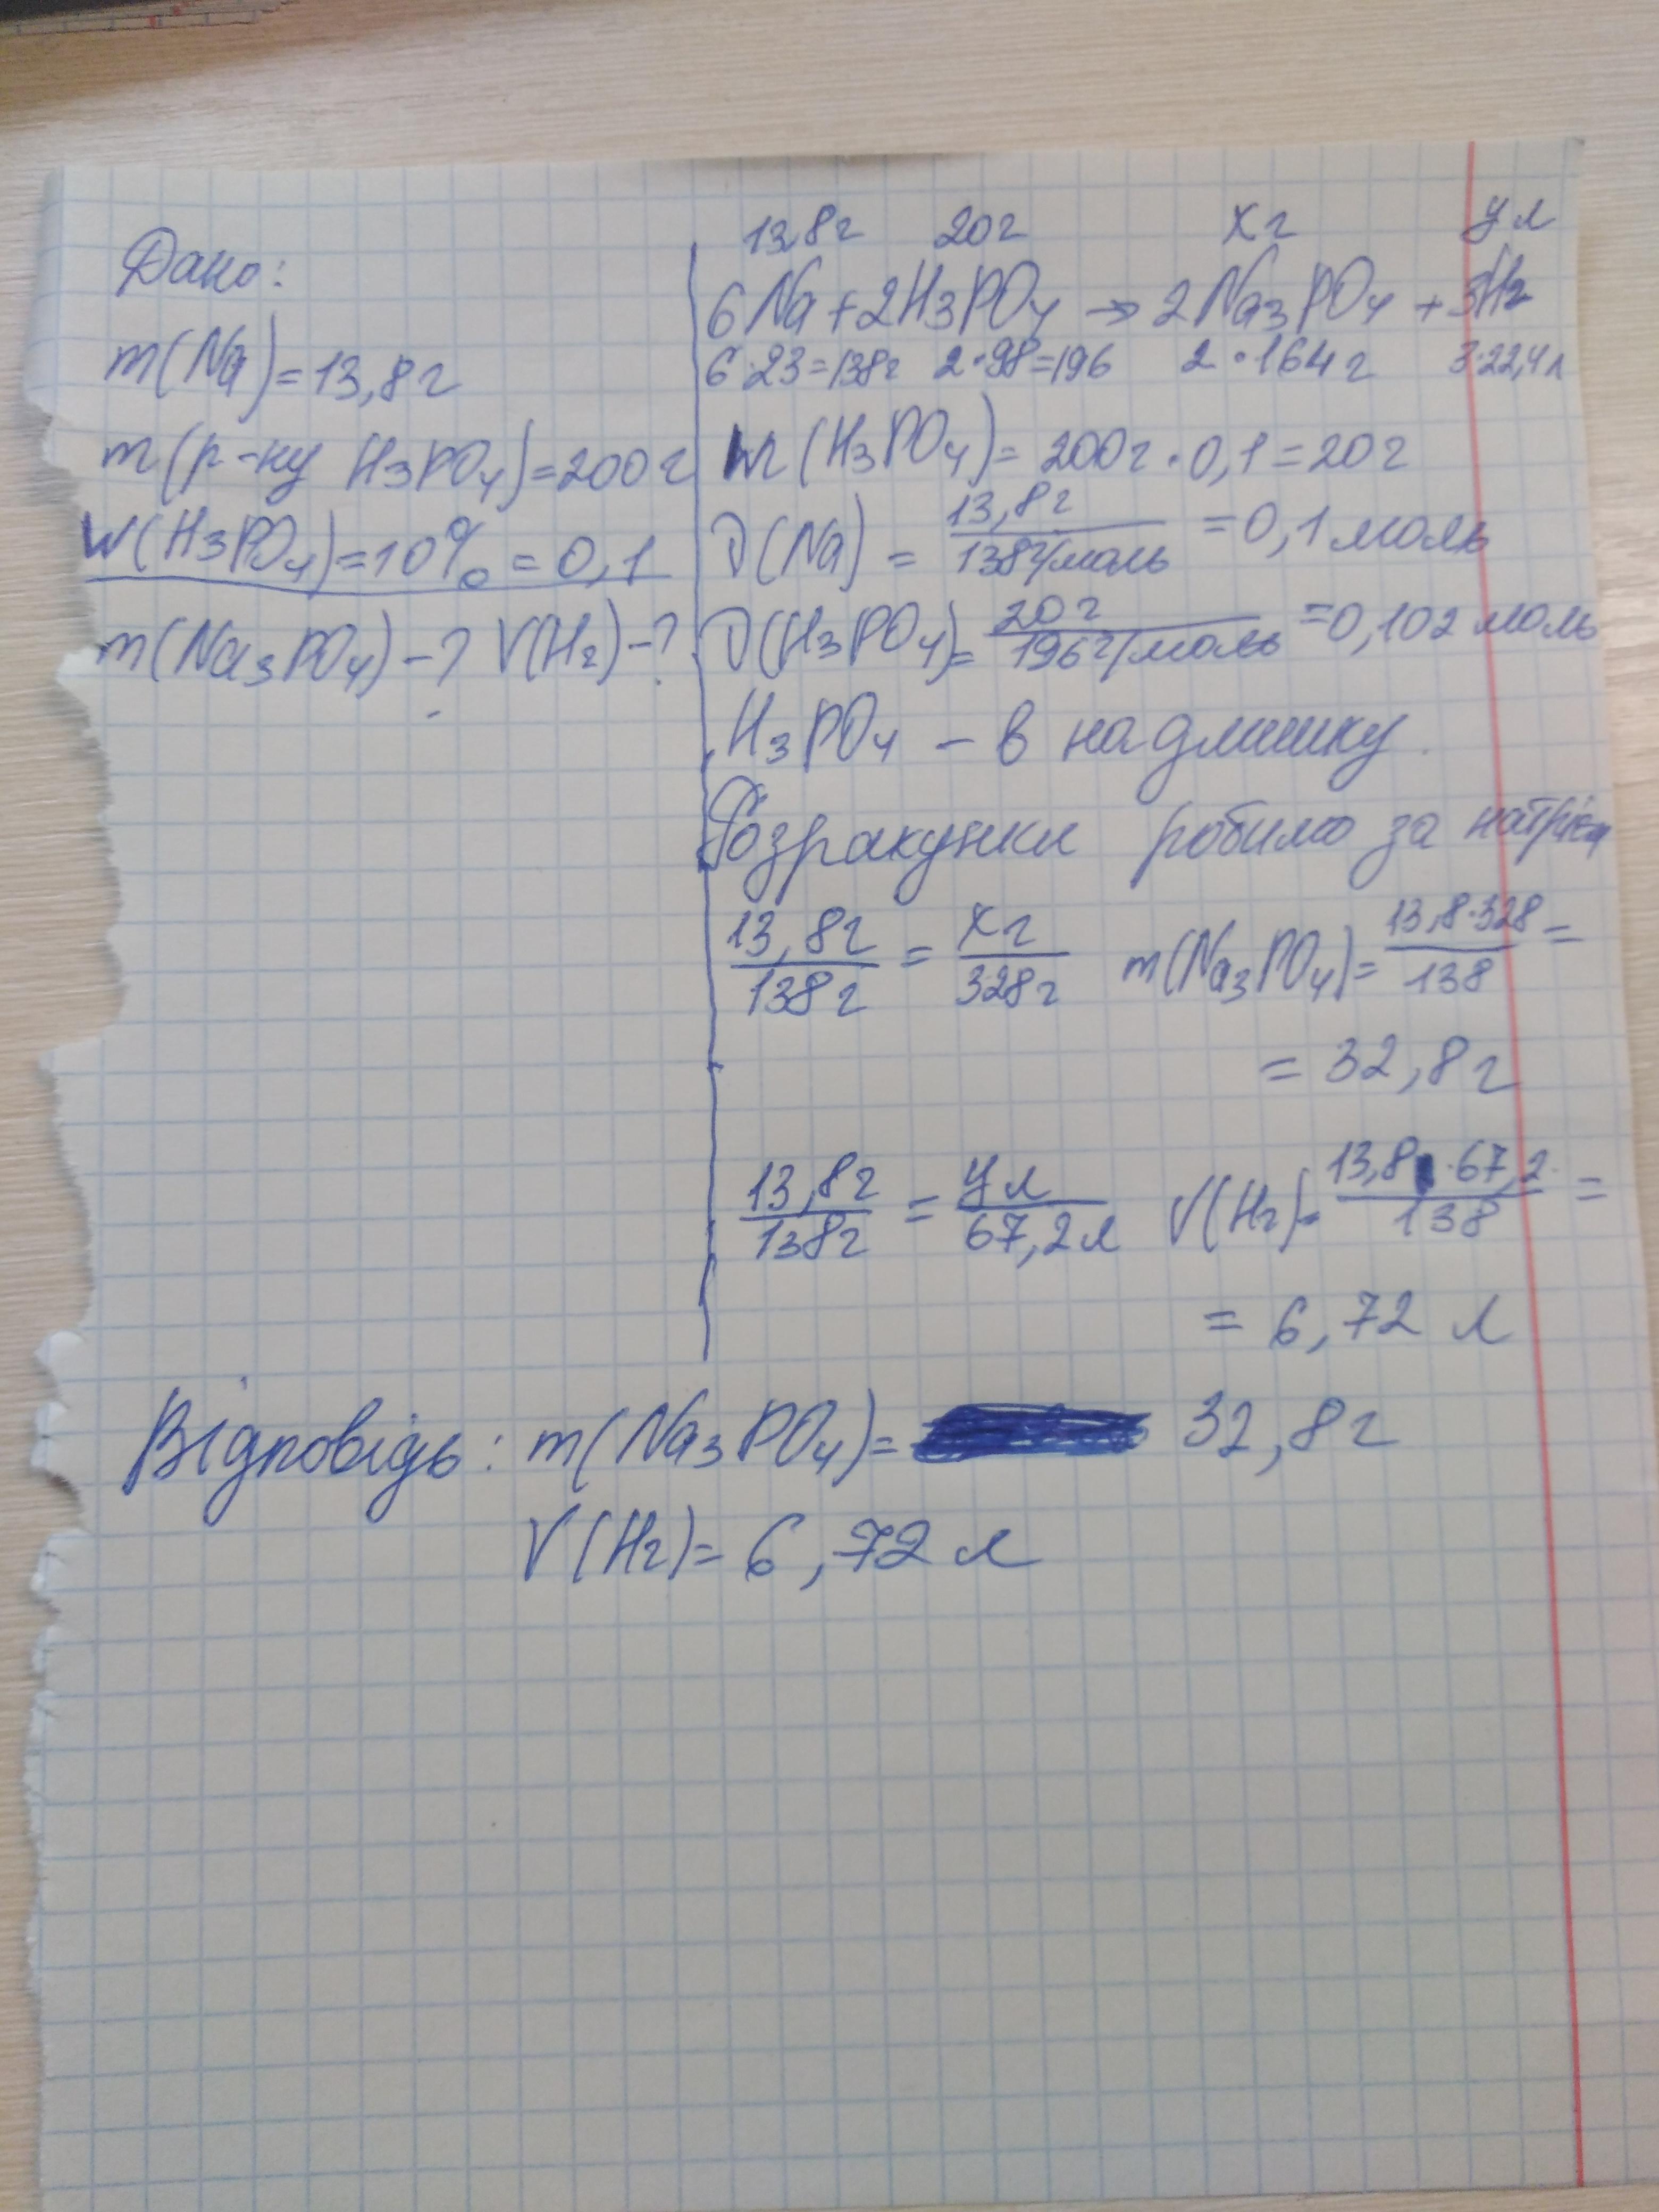 Дано:
m(Na)=13,8г
m(р-ну H₃PO₄)=200г
W(H₃PO₄)=10%=0,1
m(Na₃PO₄)-? V(H₂)-?
13,8г 20г хг ул
6Na+2H₃PO₄→2Na₃PO₄+3H₂
6·23=138г 2·98=196 2·164г 3·22,4л
m(H₃PO₄)=200г·0,1=20г
D(Na)=13,8г/138г/моль=0,1моль
D(H₃PO₄)=20г/196г/моль=0,102моль
H₃PO₄ - в надлишку.
Розрахунки робимо за натрієм
13,8г/138г=хг/328г m(Na₃PO₄)=13,8·328/138=
=32,8г
13,8г/138г=ул/67,2л V(H₂)=13,8·67,2/138=
=6,72 л
Відповідь: m(Na₃PO₄)= 32,8г
V(H₂)=6,72л